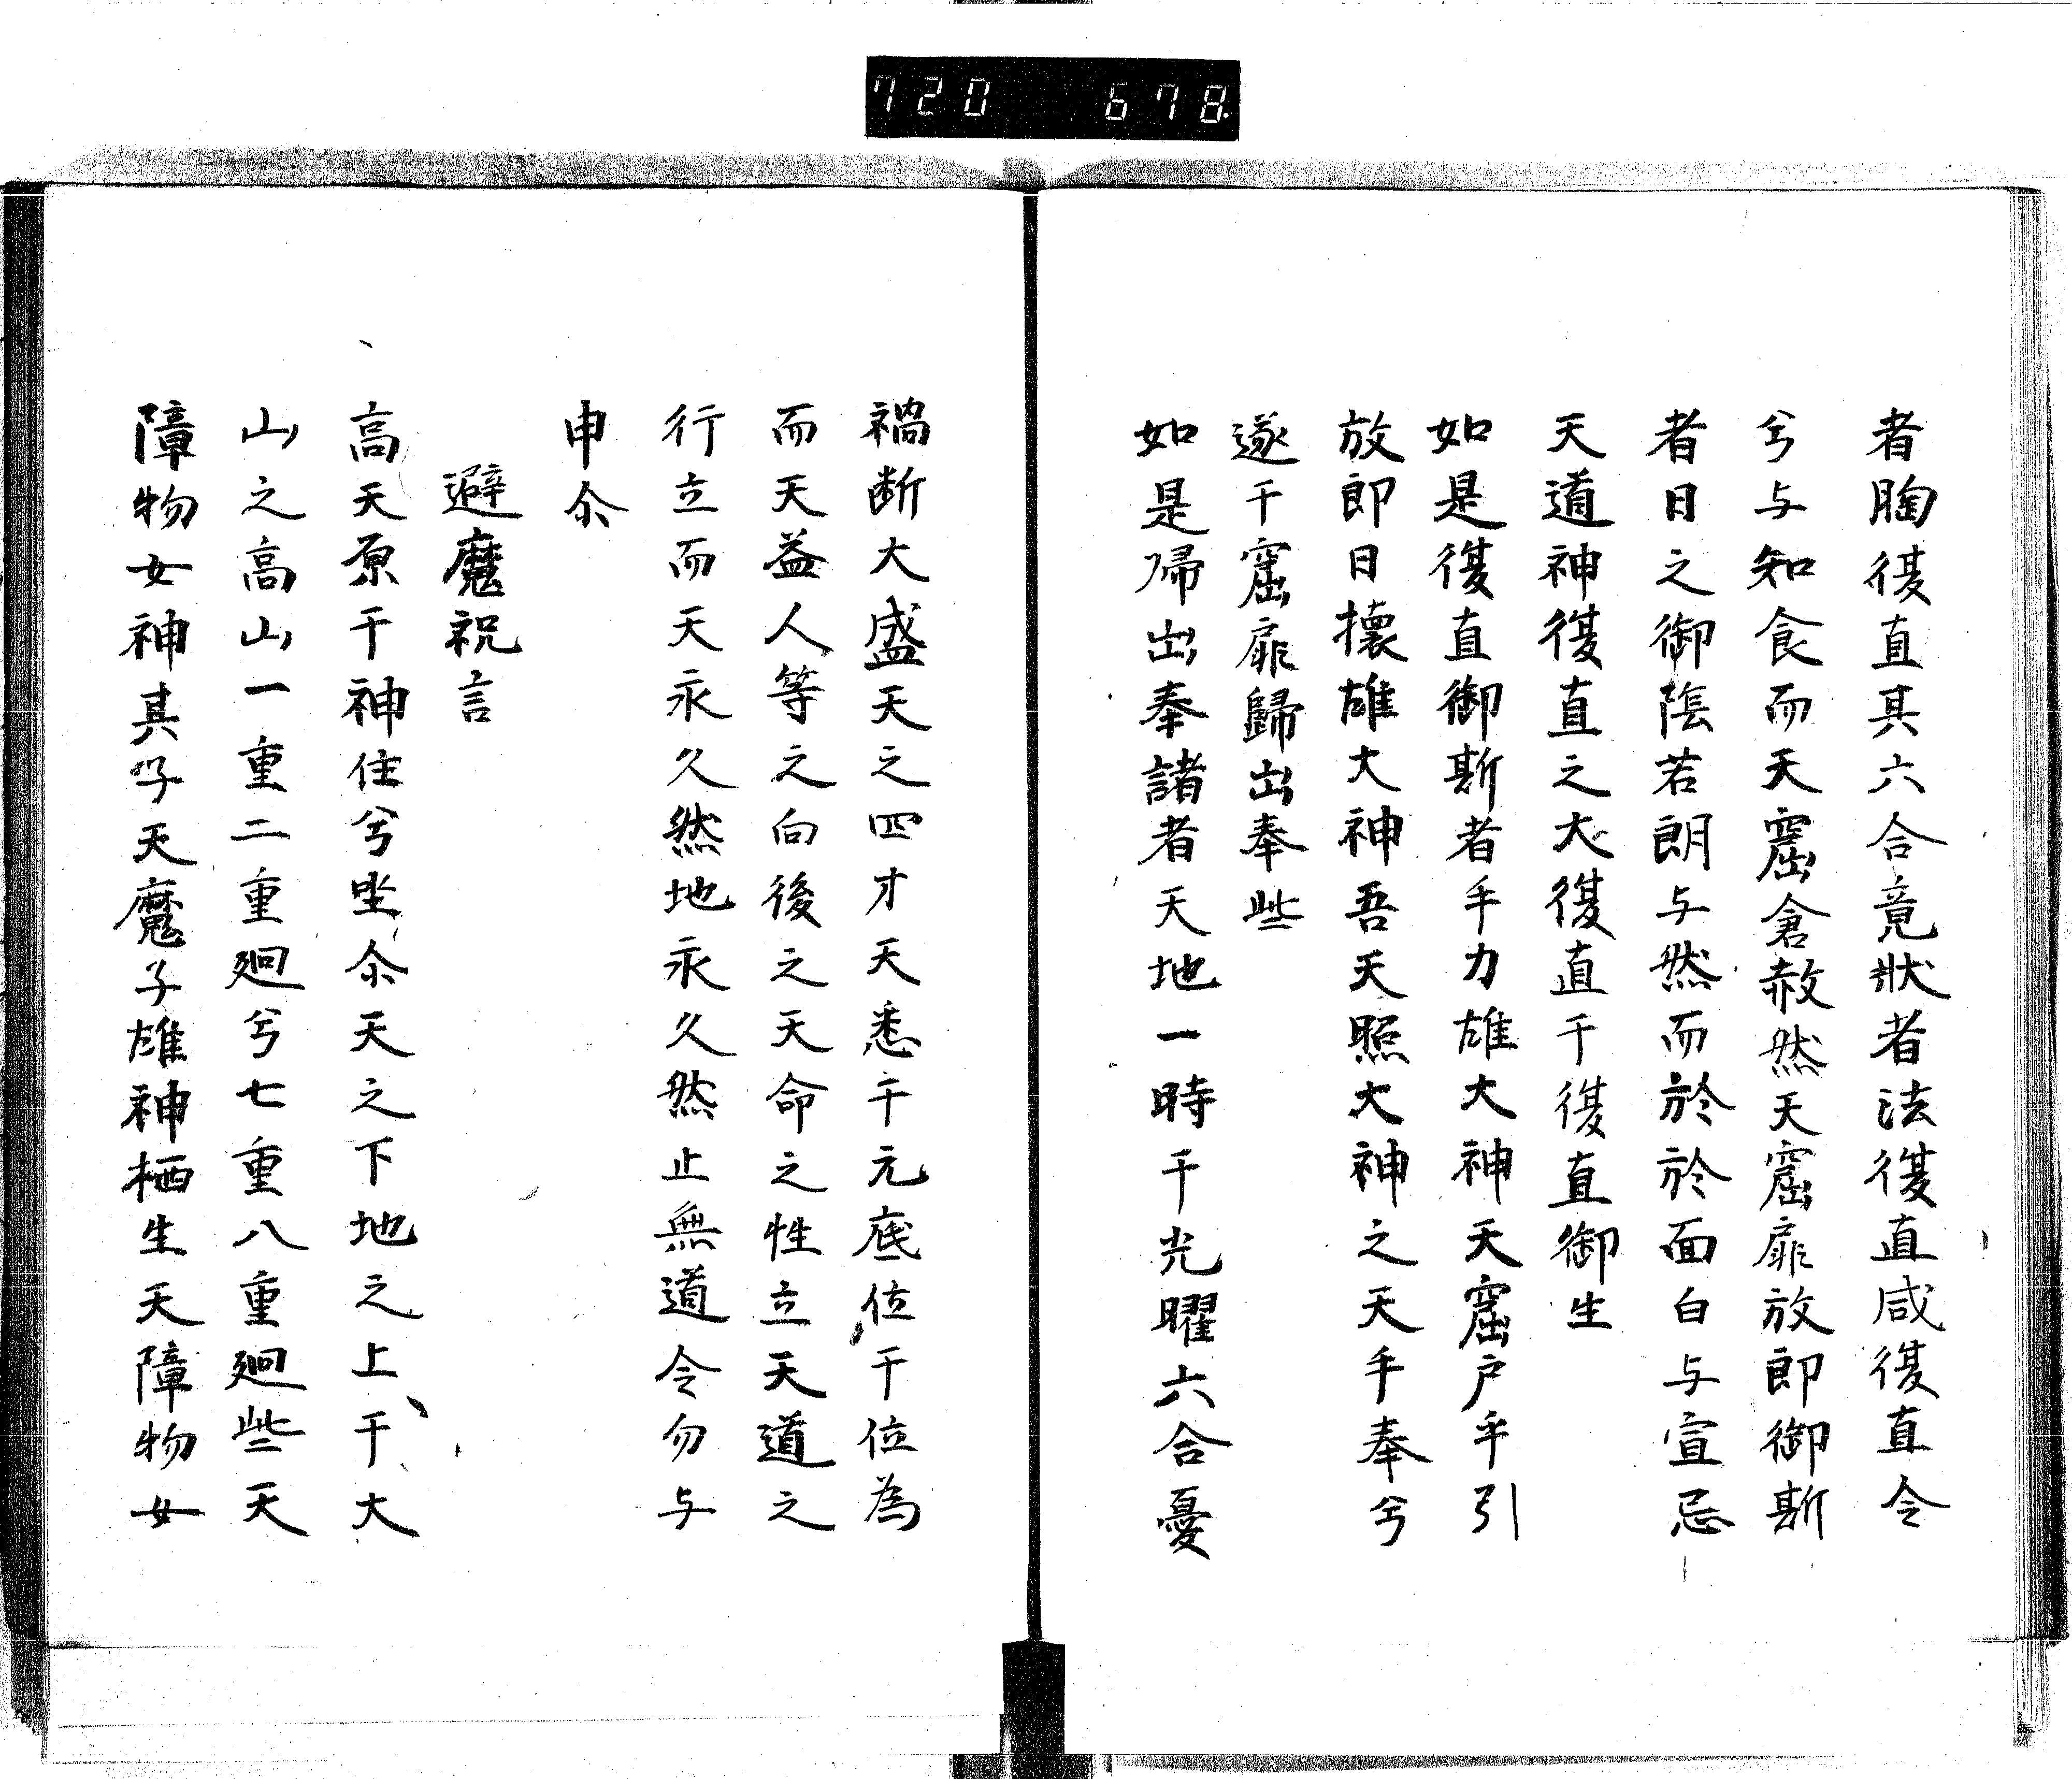 720 678
者陶復直其六合竟狀者法復直咸復直令
兮与知食而天窟倉赦然天窟扉放郎御斯
者日之御陰若朗与然而於於面白与宣忌
天道神復直之大復直干復直御生
如是復直御斯者手力雄大神天窟戸乎引
放郎日懐雄大神吾天照大神之天手奉兮
遂干窟扉歸出奉些
如是帰出奉諸者天地一時干光曜六合憂
禍断大盛天之四才天悉干元底位干位為
而天益人等之向後之天命之性立天道之
行立而天永久然地永久然止無道令勿与
申尒
避魔祝言
高天原干神住兮坐尒天之下地之上干大
山之高山一重二重廻兮七重八重廻些天
障物女神其子天魔子雄神栖生天障物女